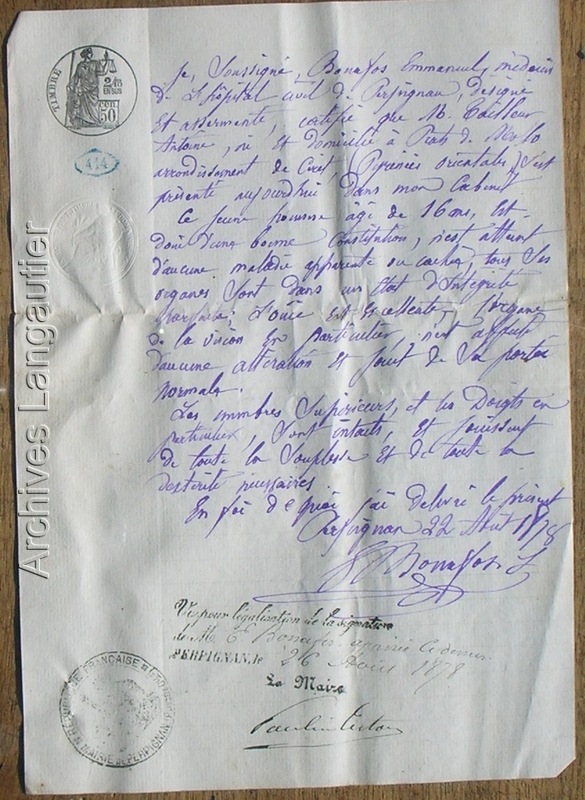 TIMBRE
2/10 EN SUS
50
414
Je, Soussigné, Bonafos Emmanuel, médecin
de l'hôpital civil de Perpignan, désigné
et assermenté, certifie que M. Tailleur
Antoine, né et domicilié à Prats de Mollo
arrondissement de Céret, (Pyrénées orientales) s'est
présenté aujourd'hui dans mon Cabinet
Ce jeune homme âgé de 16 ans, est
doué d'une bonne Constitution, n'est atteint
d'aucune maladie apparente ou cachée; tous ses
organes sont dans un état d'Intégrité
parfaite; L'ouïe est excellente, l'organe
de la vision en particulier, n'est affecté
d'aucune altération et jouit de sa portée
normale.
Les membres supérieurs, et les Doigts en
particulier, sont intacts, et jouissent
de toute la Souplesse et de toute la
dextérité nécessaires.
En foi de quoi j'ai délivré le présent
Perpignan 22 Août 1878
Bonafos
Vu pour légalisation de la signature
de M. E. Bonafos apposée ci-dessus
PERPIGNAN, le 26 Août 1878
Le Maire
REPUBLIQUE FRANÇAISE
MAIRIE de PERPIGNAN
Archives Langautier